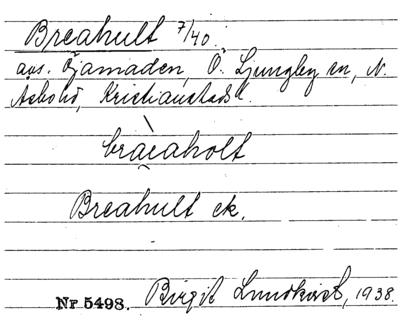 Breahult 7/40
avs. Tjamaden, Ö. Ljungby sn, N.
Åsbo hd, Kristianstads l.
bræaholt
Breahult ek.
Nr 5498. Birgit Lundkvist, 1938.